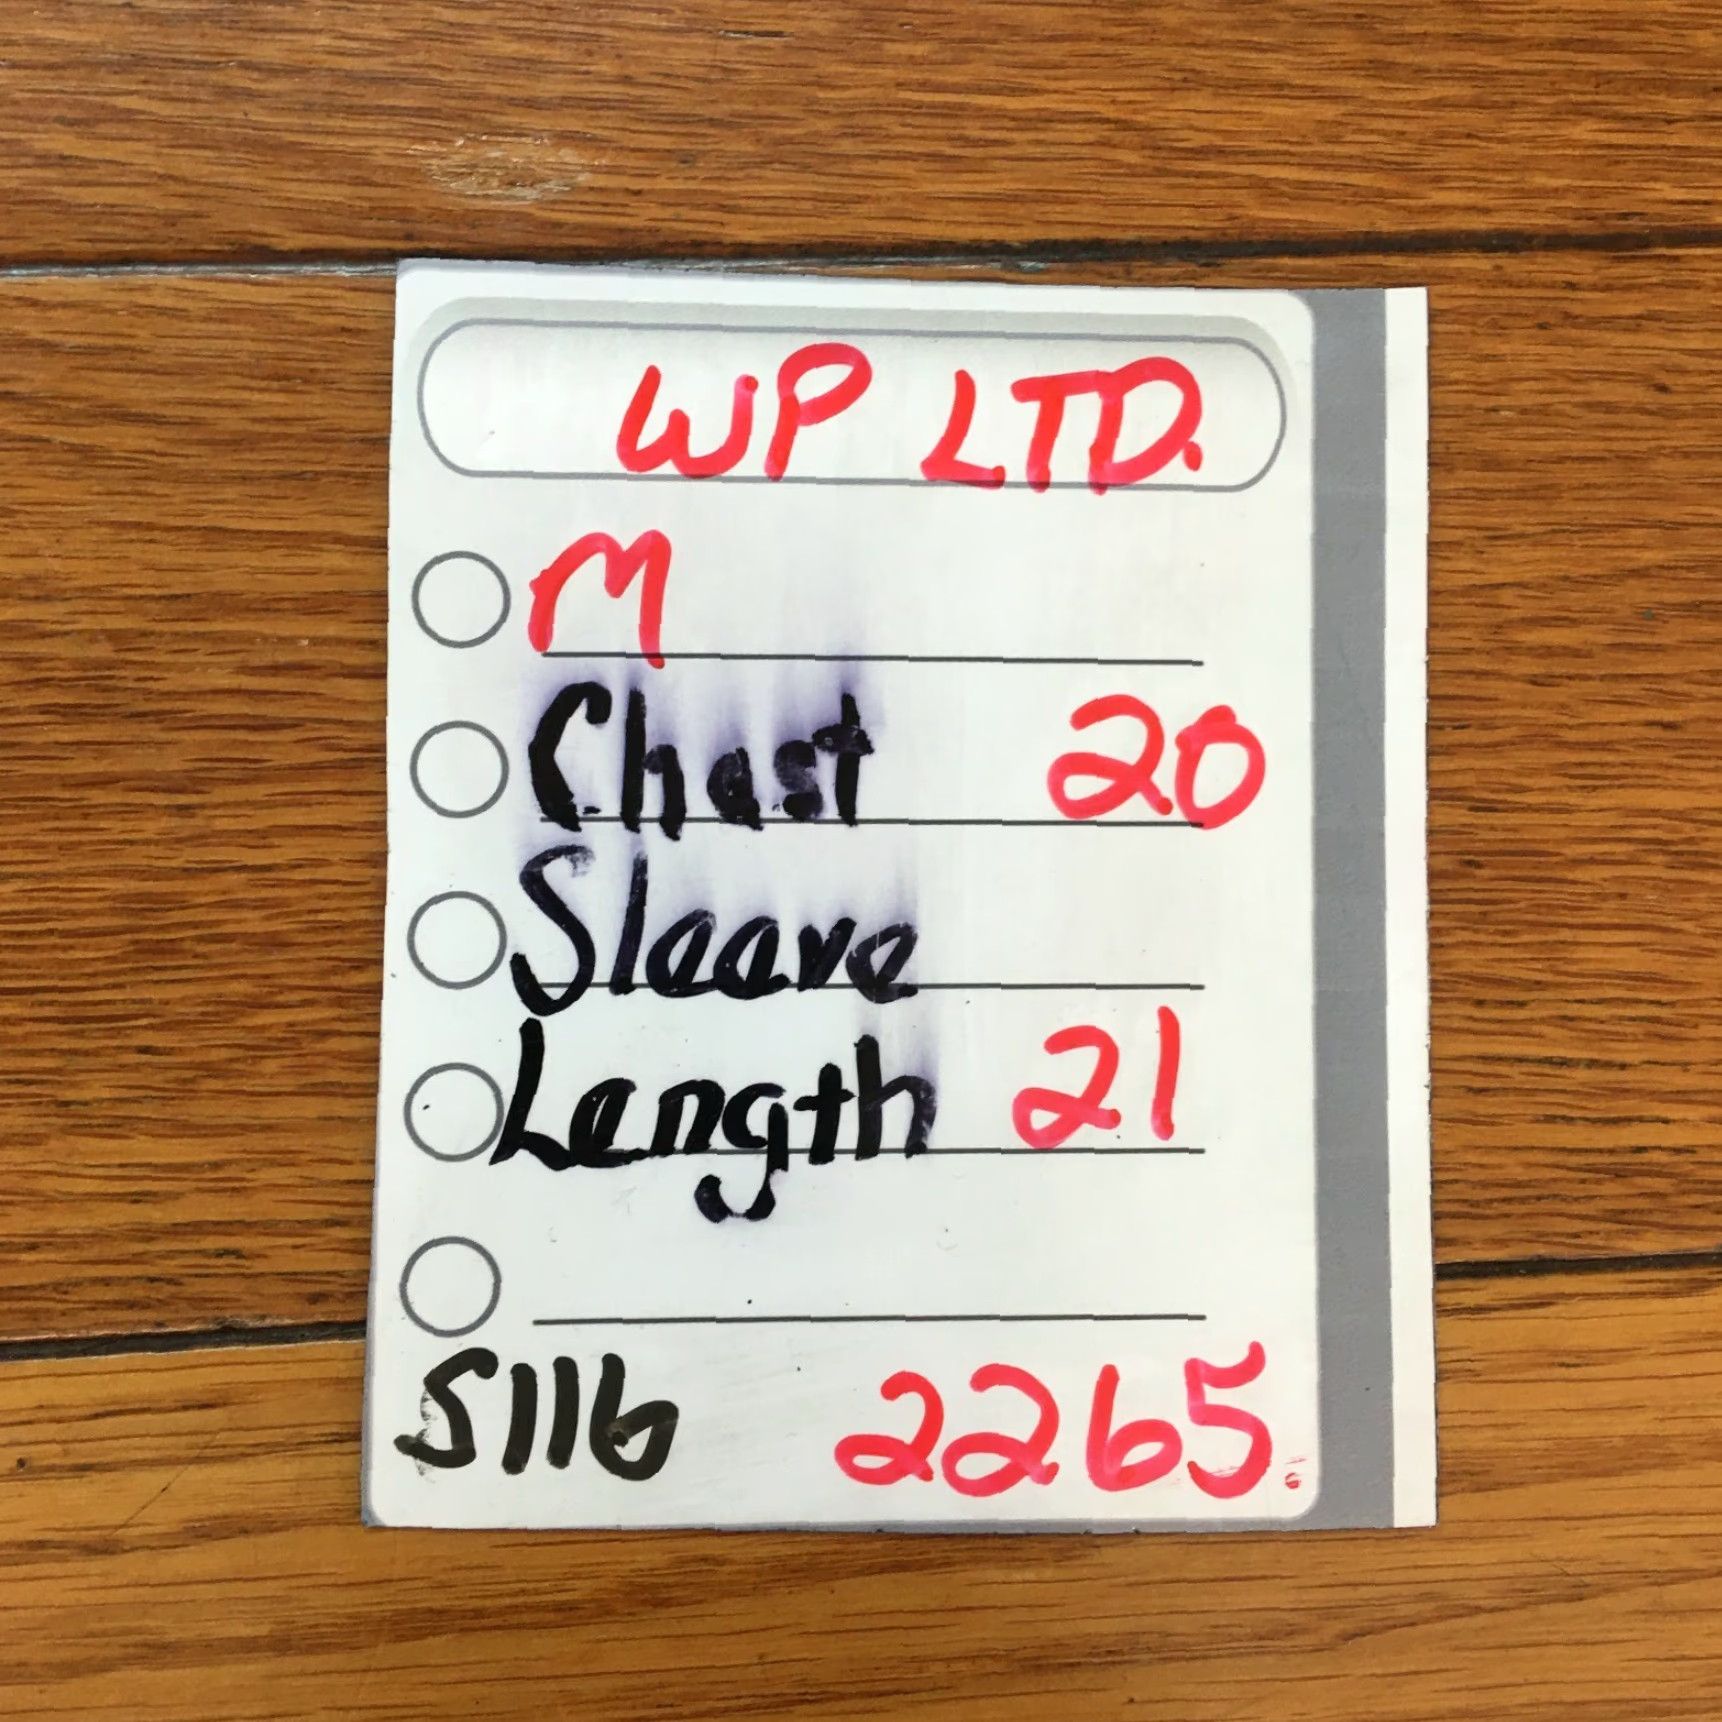 WP LTD.
M
Chest 20
Sleeve
Length 21
S116 2265.